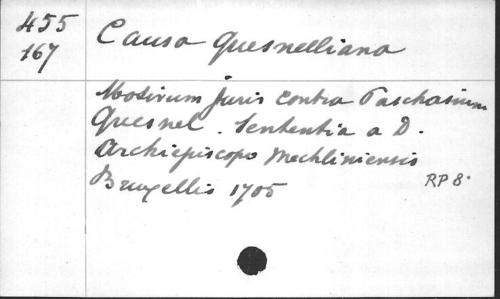 455
167
Causa Quesnelliana
Motivum juris contra Paschasium
Quesnel. Sententia a D.
Archiepiscopo Mechliniensis
Bruxellis 1705
RP 8°